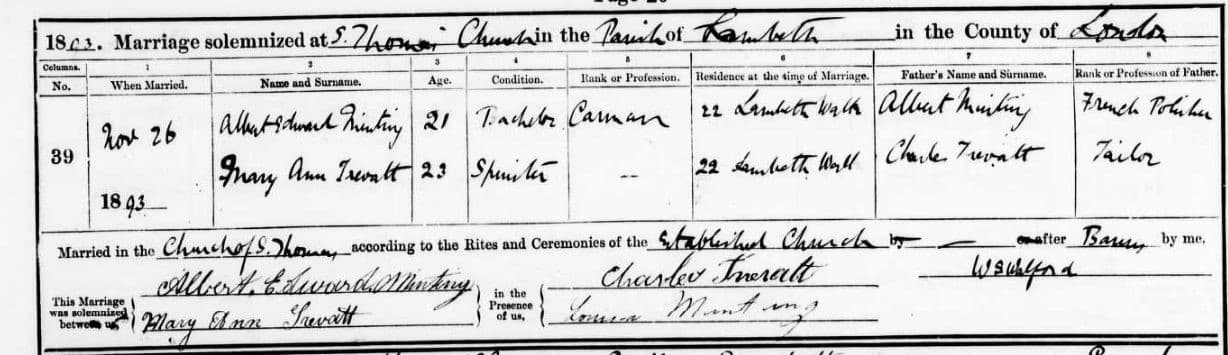 1893. Marriage solemnized at S. Thomas' Church in the Parish of Lambeth in the County of London
Columns. 1 2 3 4 5 6 7 8
No. When Married. Name and Surname. Age. Condition. Rank or Profession. Residence at the time of Marriage. Father's Name and Surname. Rank or Profession of Father.
39 Nov 26 1893 Albert Edward Minting 21 Bachelor Carman 22 Lambeth Walk Albert Minting French Polisher
Mary Ann Trevatt 23 Spinster -- 22 Lambeth Walk Charles Trevatt Tailor
Married in the Church of S. Thomas according to the Rites and Ceremonies of the Established Church by — or after Banns by me,
This Marriage was solemnized between us, Albert Edward Minting in the Presence of us, Charles Trevatt
Mary Ann Trevatt Louisa Minting